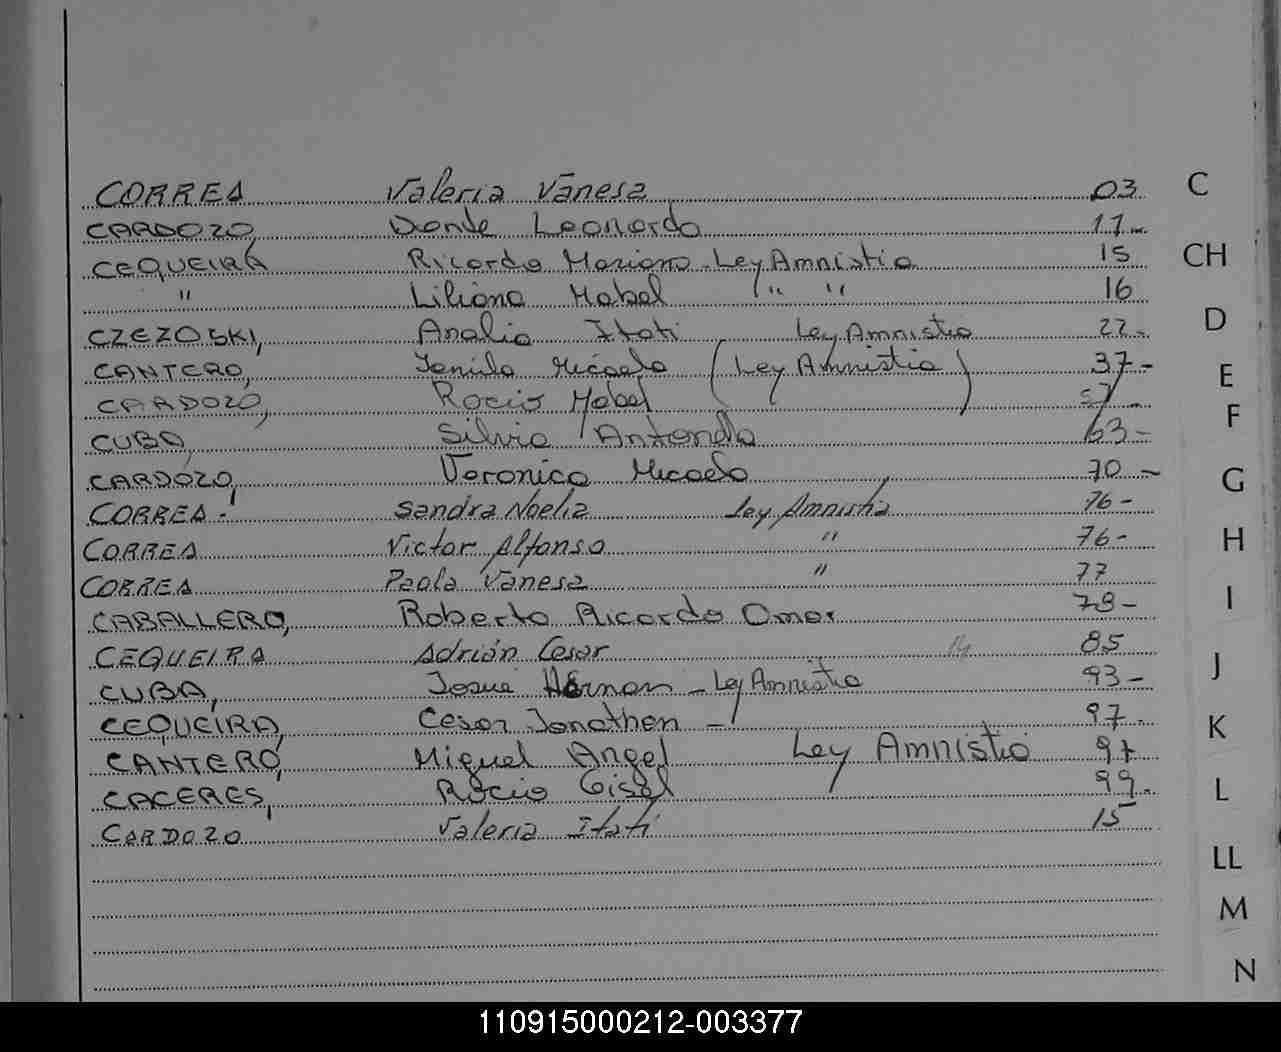 CORREA Valeria Vanesa 03 C
CARDOZO, Dante Leonardo 11-
CEQUEIRA Ricardo Mariano - Ley Amnistia 15 CH
" Liliana Mabel " " 16
CZEZOSKI, Analia Itati Ley Amnistia 22- D
CANTERO, Micaela (Ley Amnistia) 37- E
CARDOZO, Rocio Mabel 57- F
CUBA, Silvia Antonela 63-
CARDOZO, Veronica Micaela 70- G
CORREA - Sandra Noelia Ley Amnistia 76-
CORREA Victor Alfonso " 76- H
CORREA Paola Vanesa " 77
CABALLERO, Roberto Ricardo Omar 78- I
CEQUEIRA Adrián Cesar 14 85
CUBA, Josue Hernan - Ley Amnistia 93- J
CEQUEIRA, Cesar Jonathan - 97- K
CANTERO, Miguel Angel Ley Amnistia 97
CACERES, Rocio Gisel 99- L
CARDOZO Valeria Itati 15
LL
M
N
110915000212-003377